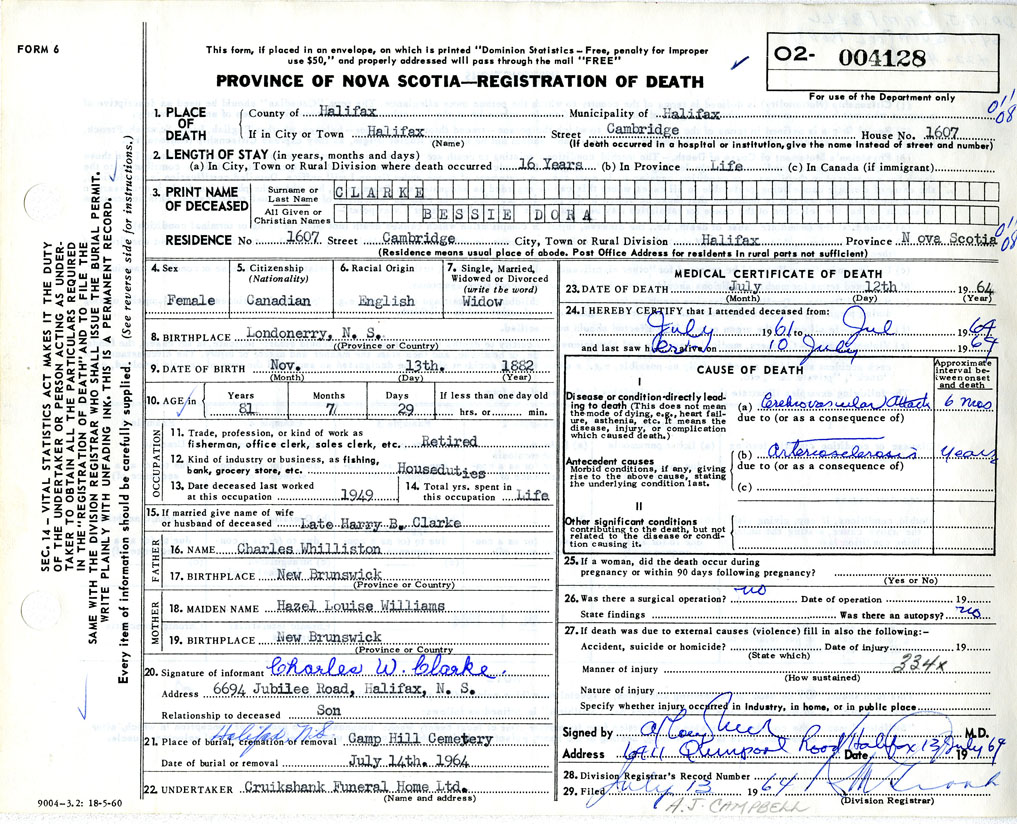 FORM 6
This form, if placed in an envelope, on which is printed "Dominion Statistics – Free, penalty for improper
use $50," and properly addressed will pass through the mail "FREE"
PROVINCE OF NOVA SCOTIA—REGISTRATION OF DEATH
02- 004128
For use of the Department only
1. PLACE OF DEATH
County of Halifax Municipality of Halifax
If in City or Town Halifax Street Cambridge House No. 1607
(Name) (If death occurred in a hospital or institution, give the name instead of street and number)
2. LENGTH OF STAY (in years, months and days)
(a) In City, Town or Rural Division where death occurred 16 Years (b) In Province Life (c) In Canada (if immigrant)
3. PRINT NAME OF DECEASED
Surname or Last Name CLARKE
All Given or Christian Names BESSIE DORA
RESIDENCE No 1607 Street Cambridge City, Town or Rural Division Halifax Province Nova Scotia
(Residence means usual place of abode. Post Office Address for residents in rural parts not sufficient)
4. Sex
Female
5. Citizenship
(Nationality)
Canadian
6. Racial Origin
English
7. Single, Married,
Widowed or Divorced
(write the word)
Widow
8. BIRTHPLACE Londonerry, N. S.
(Province or Country)
9. DATE OF BIRTH Nov. 13th. 1882
(Month) (Day) (Year)
10. AGE in
Years Months Days If less than one day old
81 7 29 hrs. or min.
OCCUPATION
11. Trade, profession, or kind of work as
fisherman, office clerk, sales clerk, etc. Retired
12. Kind of industry or business, as fishing,
bank, grocery store, etc. Houseduties
13. Date deceased last worked
at this occupation 1949
14. Total yrs. spent in
this occupation Life
15. If married give name of wife
or husband of deceased Late Harry B. Clarke
FATHER
16. NAME Charles Whilliston
17. BIRTHPLACE New Brunswick
(Province or Country)
MOTHER
18. MAIDEN NAME Hazel Louise Williams
19. BIRTHPLACE New Brunswick
(Province or Country
20. Signature of informant Charles W. Clarke.
Address 6694 Jubilee Road, Halifax, N. S.
Relationship to deceased Son
Halifax N.S.
21. Place of burial, cremation or removal Camp Hill Cemetery
Date of burial or removal July 14th. 1964
22. UNDERTAKER Cruikshank Funeral Home Ltd.
(Name and address)
9004-3.2: 18-5-60
MEDICAL CERTIFICATE OF DEATH
23. DATE OF DEATH July 12th 1964
(Month) (Day) (Year)
24. I HEREBY CERTIFY that I attended deceased from:
July 1961 to Jul 1964
and last saw h alive on 10 July 1964
CAUSE OF DEATH
Approximate
interval be-
tween onset
and death
I
Disease or condition directly lead-
ing to death (This does not mean
the mode of dying, e.g., heart fail-
ure, asthenia, etc. It means the
disease, injury, or complication
which caused death.)
(a) Cerebrovascular Attack 6 mos
due to (or as a consequence of)
Antecedent causes
Morbid conditions, if any, giving
rise to the above cause, stating
the underlying condition last.
(b) Arteriosclerosis Years
due to (or as a consequence of)
(c)
II
Other significant conditions
contributing to the death, but not
related to the disease or condi-
tion causing it.
25. If a woman, did the death occur during
pregnancy or within 90 days following pregnancy?
(Yes or No)
26. Was there a surgical operation? no Date of operation 19
State findings Was there an autopsy? no
27. If death was due to external causes (violence) fill in also the following:–
Accident, suicide or homicide? Date of injury 19
(State which)
334x
Manner of injury
(How sustained)
Nature of injury
Specify whether injury occurred in Industry, in home, or in public place
Signed by M.D.
Address 6411 Quinpool Road Halifax Date 13 July 1964
28. Division Registrar's Record Number
29. Filed July 13 1964
(Division Registrar)
A.J. CAMPBELL
SEC. 14 – VITAL STATISTICS ACT MAKES IT THE DUTY
OF THE UNDERTAKER OR PERSON ACTING AS UNDER-
TAKER TO OBTAIN ALL THE PARTICULARS REQUIRED
IN THE "REGISTRATION OF DEATH" AND TO FILE THE
SAME WITH THE DIVISION REGISTRAR WHO SHALL ISSUE THE BURIAL PERMIT.
WRITE PLAINLY WITH UNFADING INK. THIS IS A PERMANENT RECORD.
Every item of information should be carefully supplied. (See reverse side for instructions.)